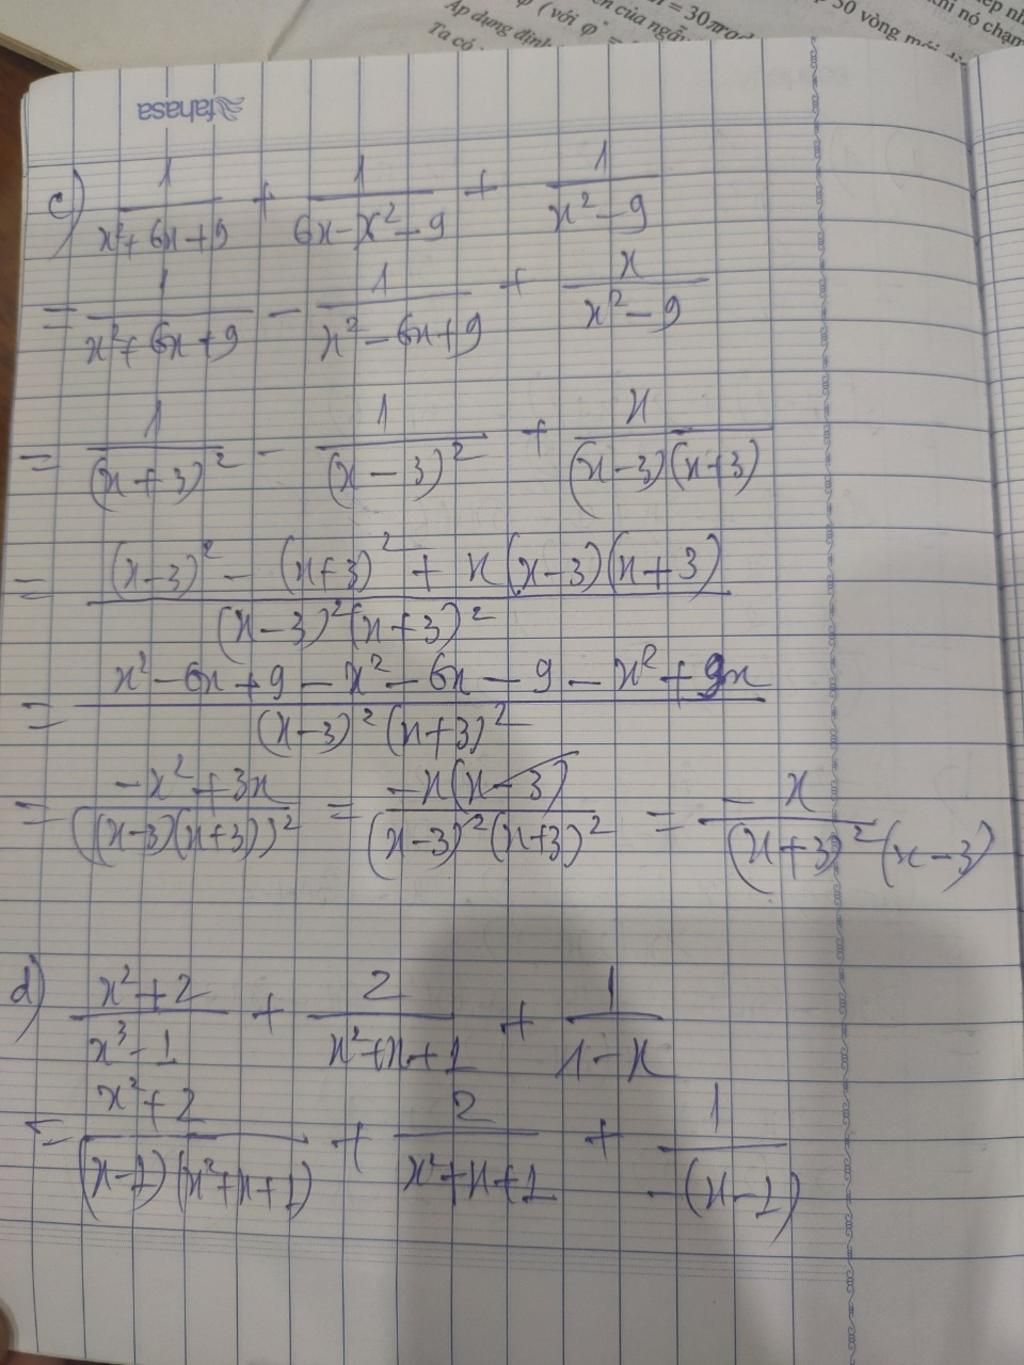 φ ( với φ =
Áp dụng định
Ta có
của ngẫu
= 30πrad
50 vòng mỗi
khi nó chạm
fahasa
c) 1/(x²+6x+9) + 1/(6x-x²-9) + 1/(x²-9)
= 1/(x²+6x+9) - 1/(x²-6x+9) + x/(x²-9)
= 1/(x+3)² - 1/(x-3)² + x/((x-3)(x+3))
= ((x-3)² - (x+3)² + x(x-3)(x+3))/((x-3)²(x+3)²)
= (x²-6x+9-x²-6x-9-x²+9x)/((x-3)²(x+3)²)
= (-x²+3x)/((x-3)(x+3))² = (-x(x-3))/((x-3)²(x+3)²) = -x/((x+3)²(x-3))
d) (x²+2)/(x³-1) + 2/(x²+x+1) + 1/(1-x)
= (x²+2)/((x-1)(x²+x+1)) + 2/(x²+x+1) + 1/(-(x-1))